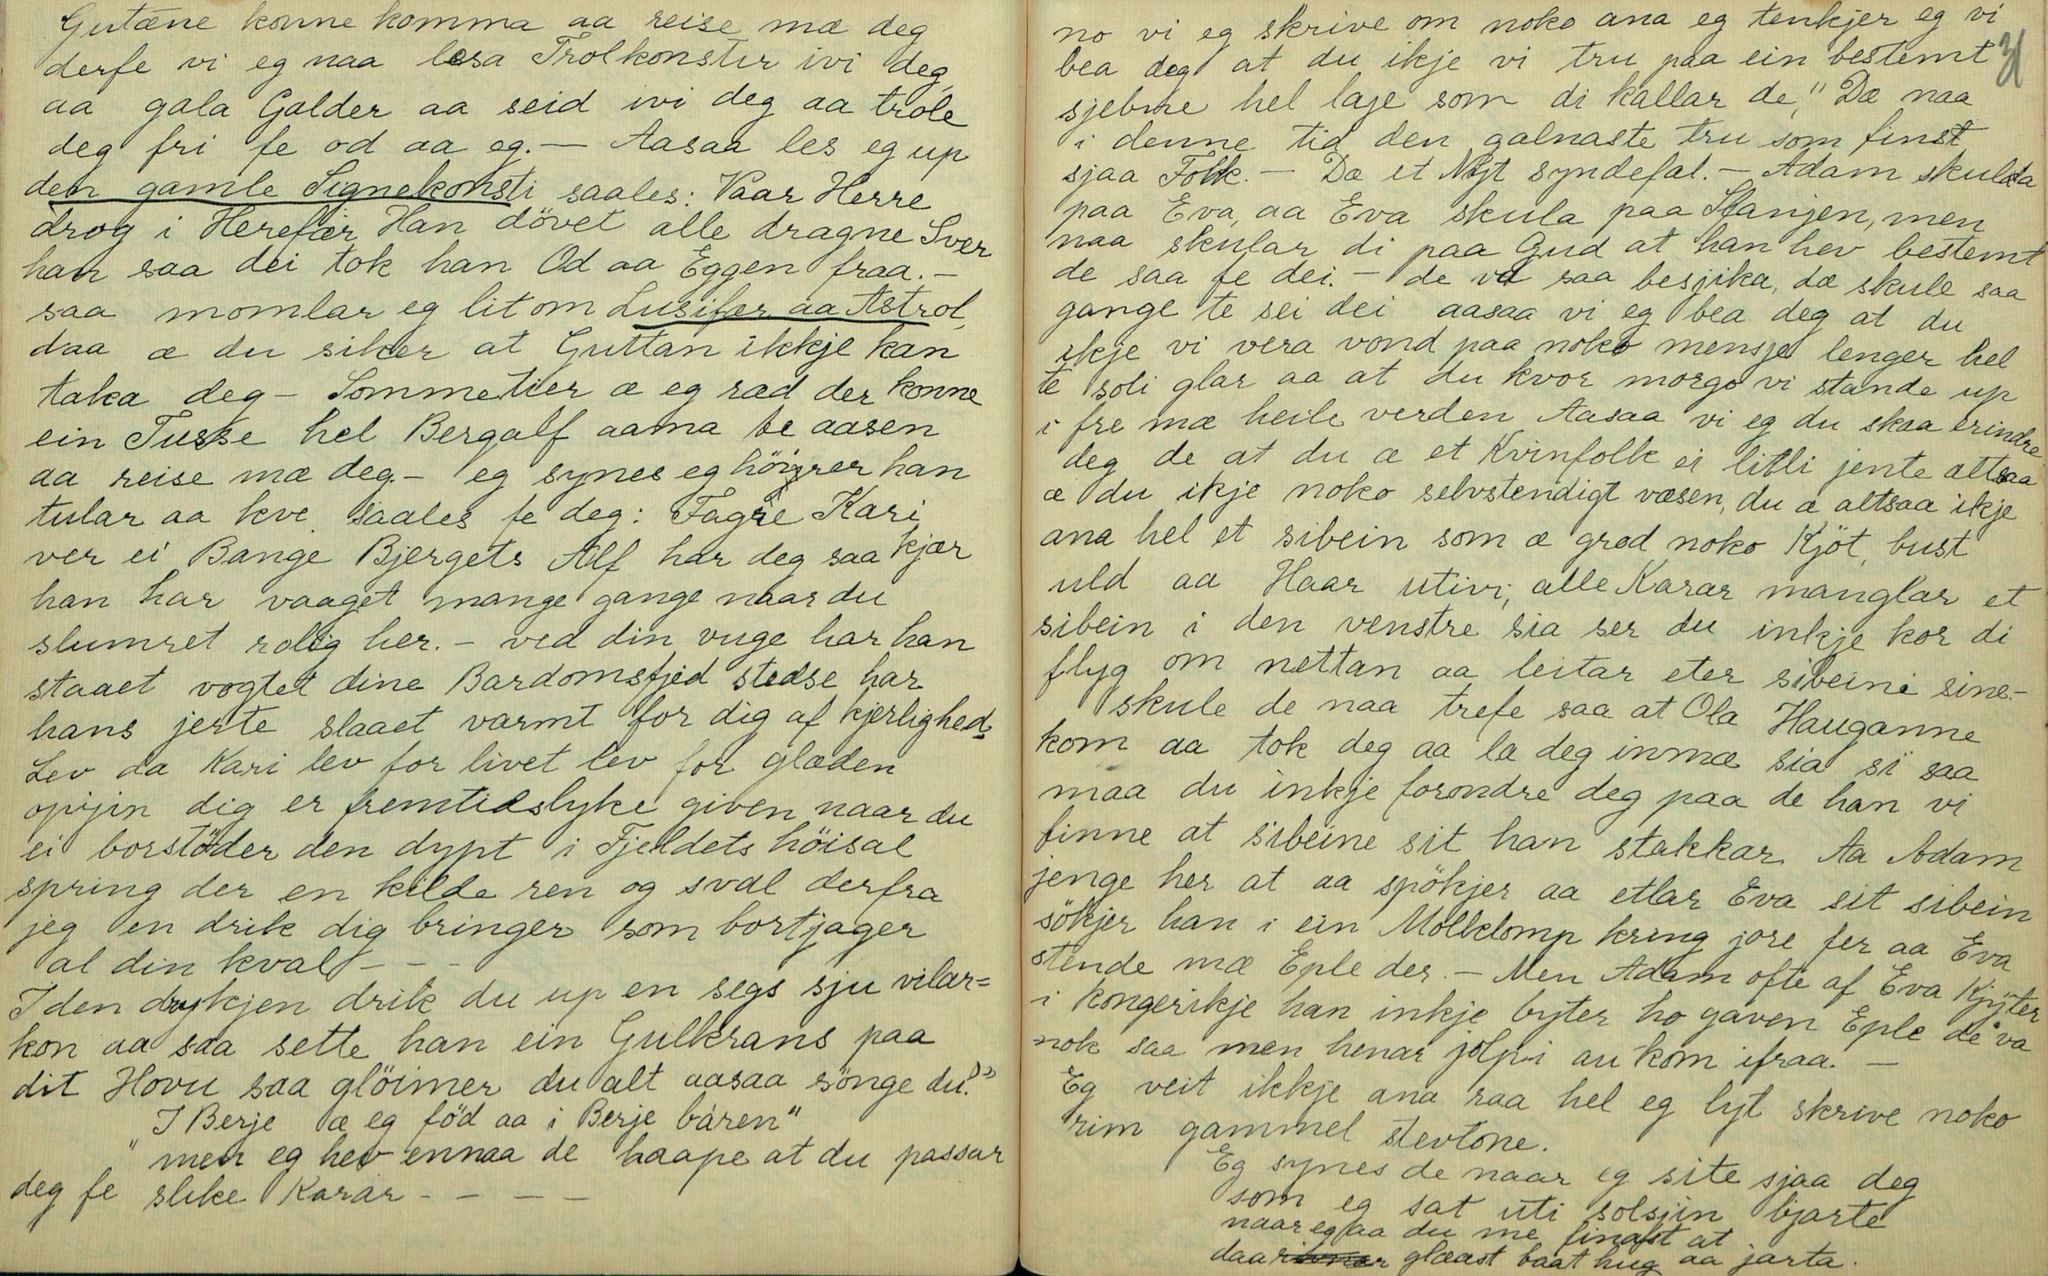 Gutæne konne komma aa reise mæ deg
derfe vi eg naa lesa Trolkonster ivi deg,
aa gala Galder aa seid ivi deg aa trole
deg fri fe od aa eg. — Aasaa les eg up
den gamle Signekonsti saales: Vaar Herre
drog i Herefær Han dövet alle dragne Sver
han saa dei tok han Od aa Eggen fraa. —
saa momlar eg lit om Lusifer aa Astrol,
daa æ du siker at Guttan ikkje kan
taka deg — Sommetier æ eg ræd der konne
ein Tusse hel Bergalf aama te aasen
aa reise mæ deg. — eg synes eg höirer han
tular aa kve saales fe deg: Fagre Kari
ver ei Bange Bjergets Alf har deg saa kjær
han har vaaget mange gange naar du
slumret rolig her. — ved din vuge har han
staaet vogtet dine Bardomsfjed stedse har
hans jerte slaaet varmt for dig af kjerlighed
Lev da Kari lev for livet lev for glæden
opijin dig er fremtidslyke given naar du
ei borstöder den dypt i Fjeldets höisal
spring der en kilde ren og sval derfra
jeg en drik dig bringer som bortjager
al din kval — - -
I den drykjen drik du up en segs sju vilar=
kon aa saa sette han ein Gulkrans paa
dit Hovu saa glöimer du alt aasaa sönge du:"
I Berje æ eg föd aa i Berje båren"
" men eg hev ennaa de haape at du passar
deg fe slike Karar - - - —
no vi eg skrive om noko ana eg tenkjer eg vi
bea deg at du ikje vi tru paa ein bestemt
sjebne hel laje som di kallar de," Dæ naa
i denne tid den galnaste tru som finst
sjaa Folk. — Dæ et Nyt syndefal. — Adam skulda
paa Eva, aa Eva skula paa Slanjen, men
naa skular di paa Gud at han hev bestemt
de saa fe dei. — de va saa besjika, dæ skule saa
gange te sei dei aasaa vi eg bea deg at du
ikje vi vera vond paa noko mensje lenger hel
te soli glar aa at du kvor morgo vi stande up
i fre mæ heile verden Aasaa vi eg du skaa erindre
deg de at du æ et Kvinfolk ei litli jente altsaa
æ du ikje noko selvstendigt væsen, du æ altsaa ikje
ana hel et sibein som æ grod noko Kjöt, bust
uld aa Haar utivi, alle Karar manglar et
sibein i den venstre sia ser du inkje kor di
flyg om nettan aa leitar eter sibeini sine—
skule de naa trefe saa at Ola Hauganne
kom aa tok deg aa la deg inmæ sia si saa
maa du inkje forondre deg paa de han vi
finne at sibeine sit han stakkar. Aa Adam
jenge her at aa spökjer aa etlar Eva sit sibein
sökjer han i ein Molklomp kring jore fer aa Eva
stende mæ Eple der. — Men Adam ofte af Eva Kjyter
i kongerikje han inkje byter ho gaven Eple de va
nok saa men henar jolpi au kom ifraa. —
Eg veit ikkje ana raa hel eg lyt skrive noko
rim gammel stevtone.
Eg synes de naar eg site sjaa deg
som eg sat uti solsjin bjarte
naar eg aa du me finast at
daa glæast baat hug aa jarta.